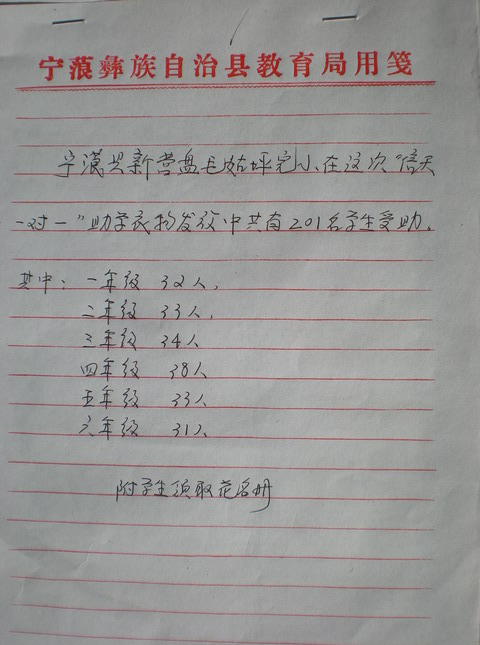 宁蒗彝族自治县教育局用笺
宁蒗县新营盘毛姑坪完小、在这次“信天
一对一”助学衣物发放中共有201名学生受助。
其中：一年级 32人，
二年级 33人，
三年级 34人
四年级 38人
五年级 33人
六年级 31人、
附学生领取花名册